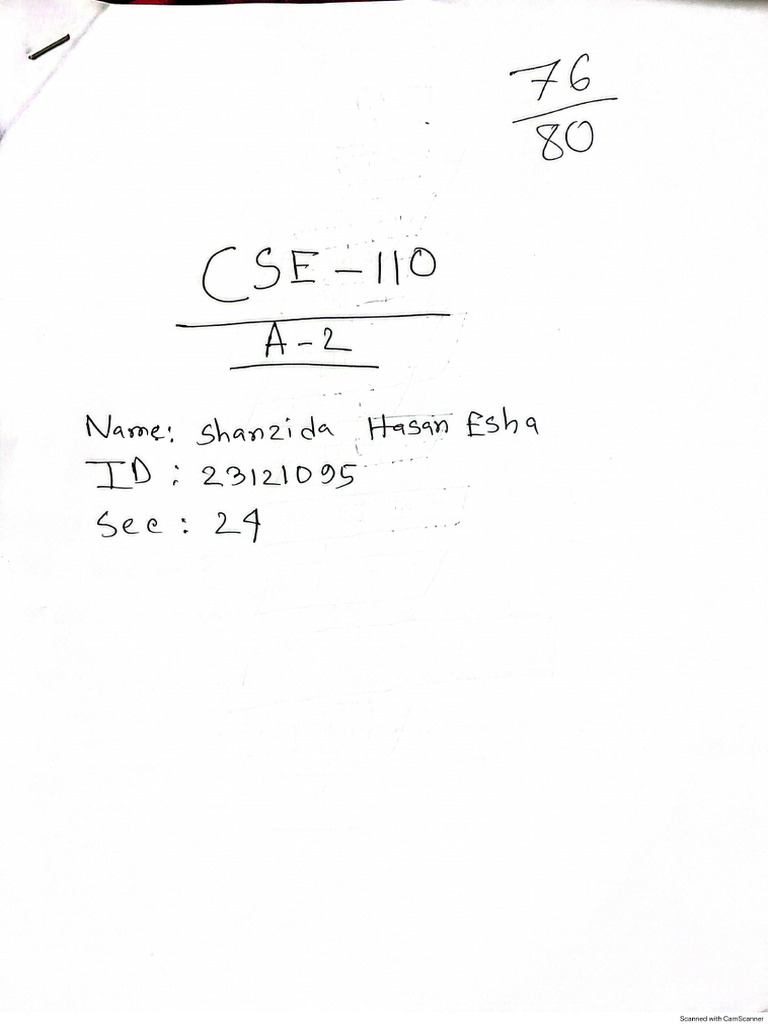 76
80
CSE-110
A-2
Name: Shanzida Hasan Esha
ID: 23121095
Sec: 24
Scanned with CamScanner